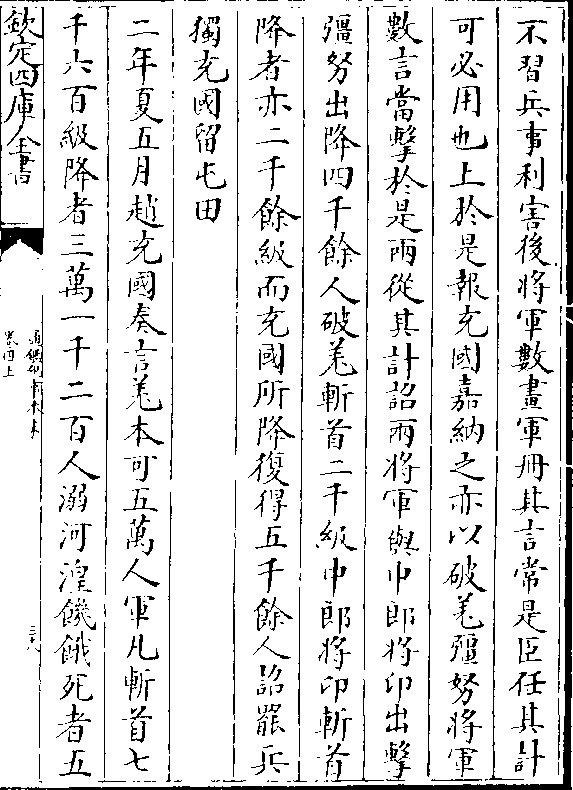 不習兵事利害後將軍數畫軍冊其言常是臣任其計
可必用也上於是報充國嘉納之亦以破羌彊弩將軍
數言當擊於是兩從其計詔兩將軍與中郎將卬出擊
彊弩出降四千餘人破羌斬首二千級中郎將卬斬首
降者亦二千餘級而充國所降復得五千餘人詔罷兵
獨充國留屯田
二年夏五月趙充國奏言羌本可五萬人軍凡斬首七
千六百級降者三萬一千二百人溺河湟饑餓死者五
欽定四庫全書
通鑑紀事本末
卷四上
三十八